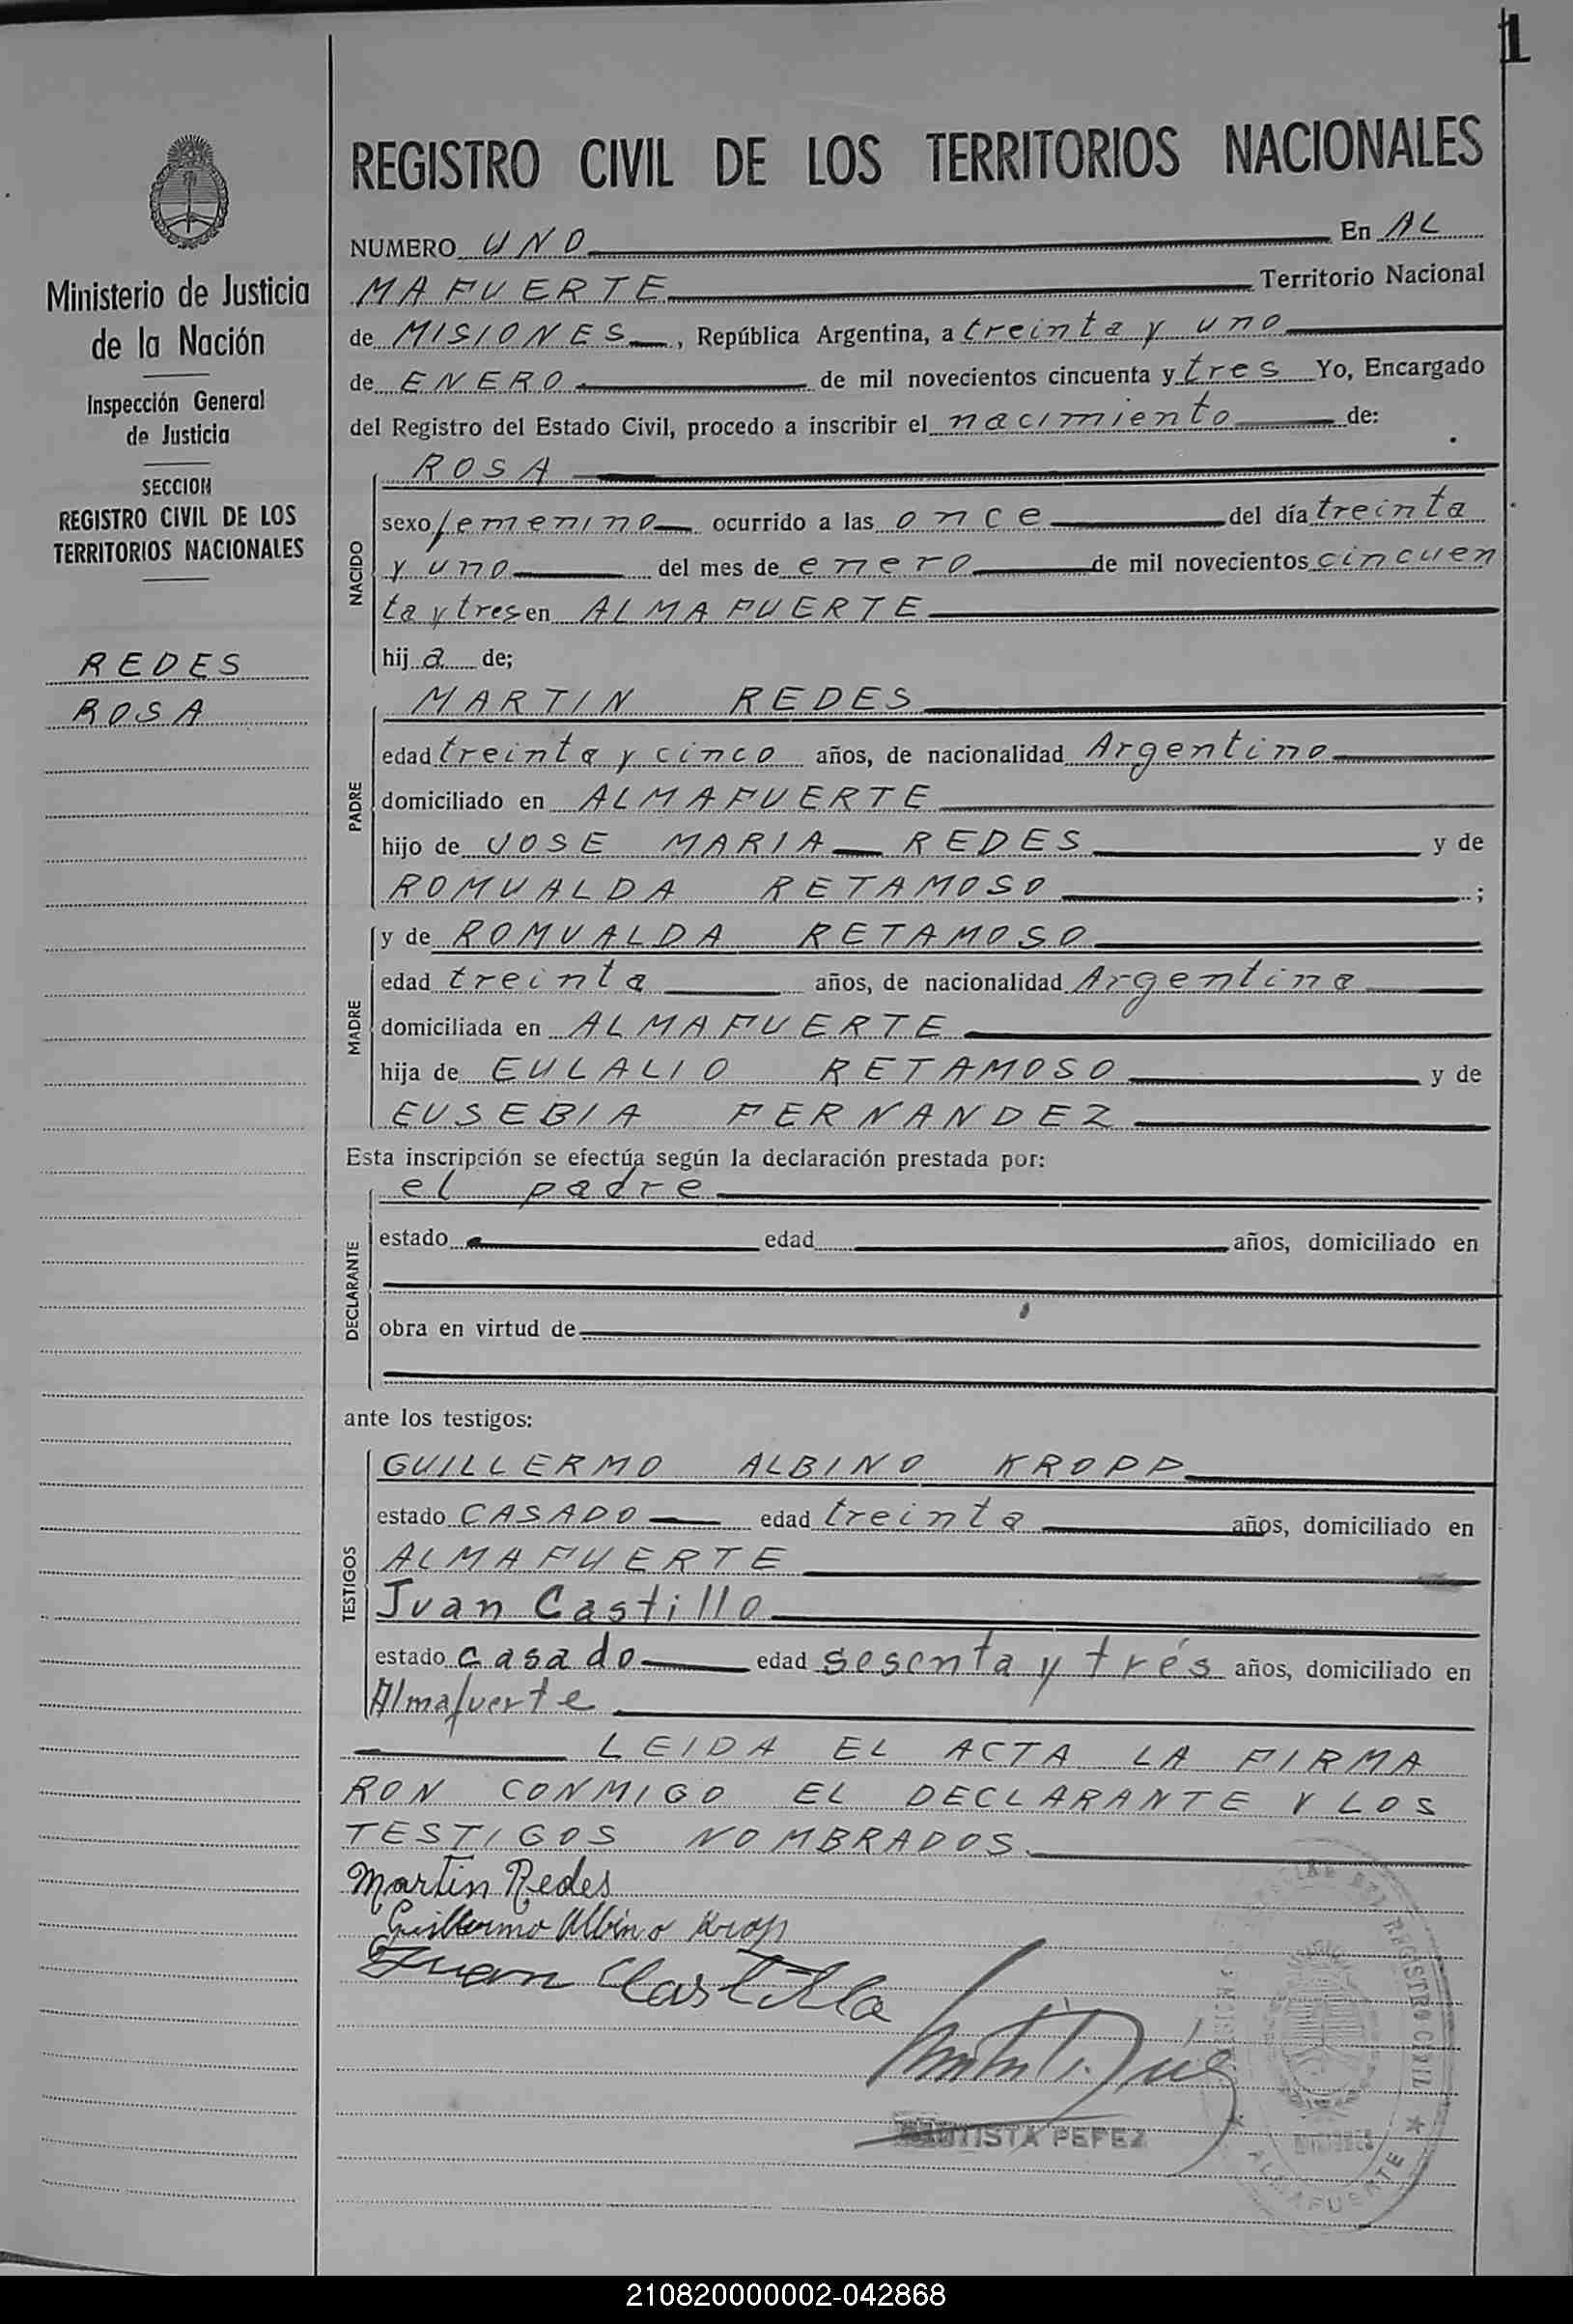 1
REGISTRO CIVIL DE LOS TERRITORIOS NACIONALES
Ministerio de Justicia
de la Nación
Inspección General
de Justicia
SECCION
REGISTRO CIVIL DE LOS
TERRITORIOS NACIONALES
REDES
ROSA
NUMERO UNO En AL
MAFUERTE Territorio Nacional
de MISIONES, República Argentina, a treinta y uno
de ENERO de mil novecientos cincuenta y tres Yo, Encargado
del Registro del Estado Civil, procedo a inscribir el nacimiento de:
NACIDO
ROSA
sexo femenino ocurrido a las once del día treinta
y uno del mes de enero de mil novecientos cincuen
ta y tres en ALMAFUERTE
hija de;
PADRE
MARTIN REDES
edad treinta y cinco años, de nacionalidad Argentino
domiciliado en ALMAFUERTE
hijo de JOSE MARIA REDES y de
ROMUALDA RETAMOSO;
MADRE
y de ROMUALDA RETAMOSO
edad treinta años, de nacionalidad Argentina
domiciliada en ALMAFUERTE
hija de EULALIO RETAMOSO y de
EUSEBIA FERNANDEZ
Esta inscripción se efectúa según la declaración prestada por:
DECLARANTE
el padre
estado edad años, domiciliado en
obra en virtud de
ante los testigos:
TESTIGOS
GUILLERMO ALBINO KROPP
estado CASADO edad treinta años, domiciliado en
ALMAFUERTE
Juan Castillo
estado casado edad sesenta y trés años, domiciliado en
Almafuerte
LEIDA EL ACTA LA FIRMA
RON CONMIGO EL DECLARANTE Y LOS
TESTIGOS NOMBRADOS.
Martin Redes
Guillermo Albino Krop
Juan Castillo
BAUTISTA PEREZ
DEL REGISTRO CIVIL
ALMAFUERTE
210820000002-042868